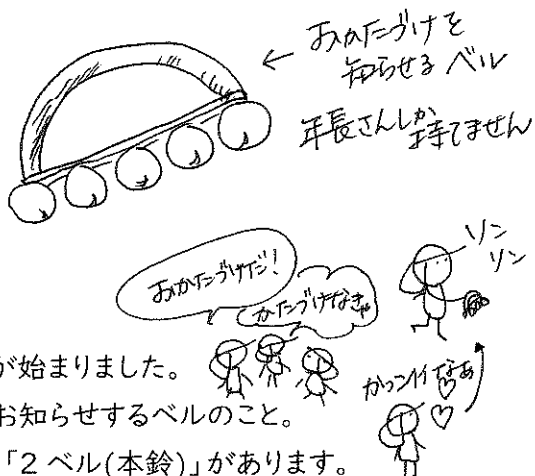 おかたづけを
知らせる ベル
年長さんしか
持てません
リン
リン
おかたづけだ！
かたづけなきゃ
かっこいいなぁ
が始まりました。
お知らせするベルのこと。
「2 ベル(本鈴)」があります。